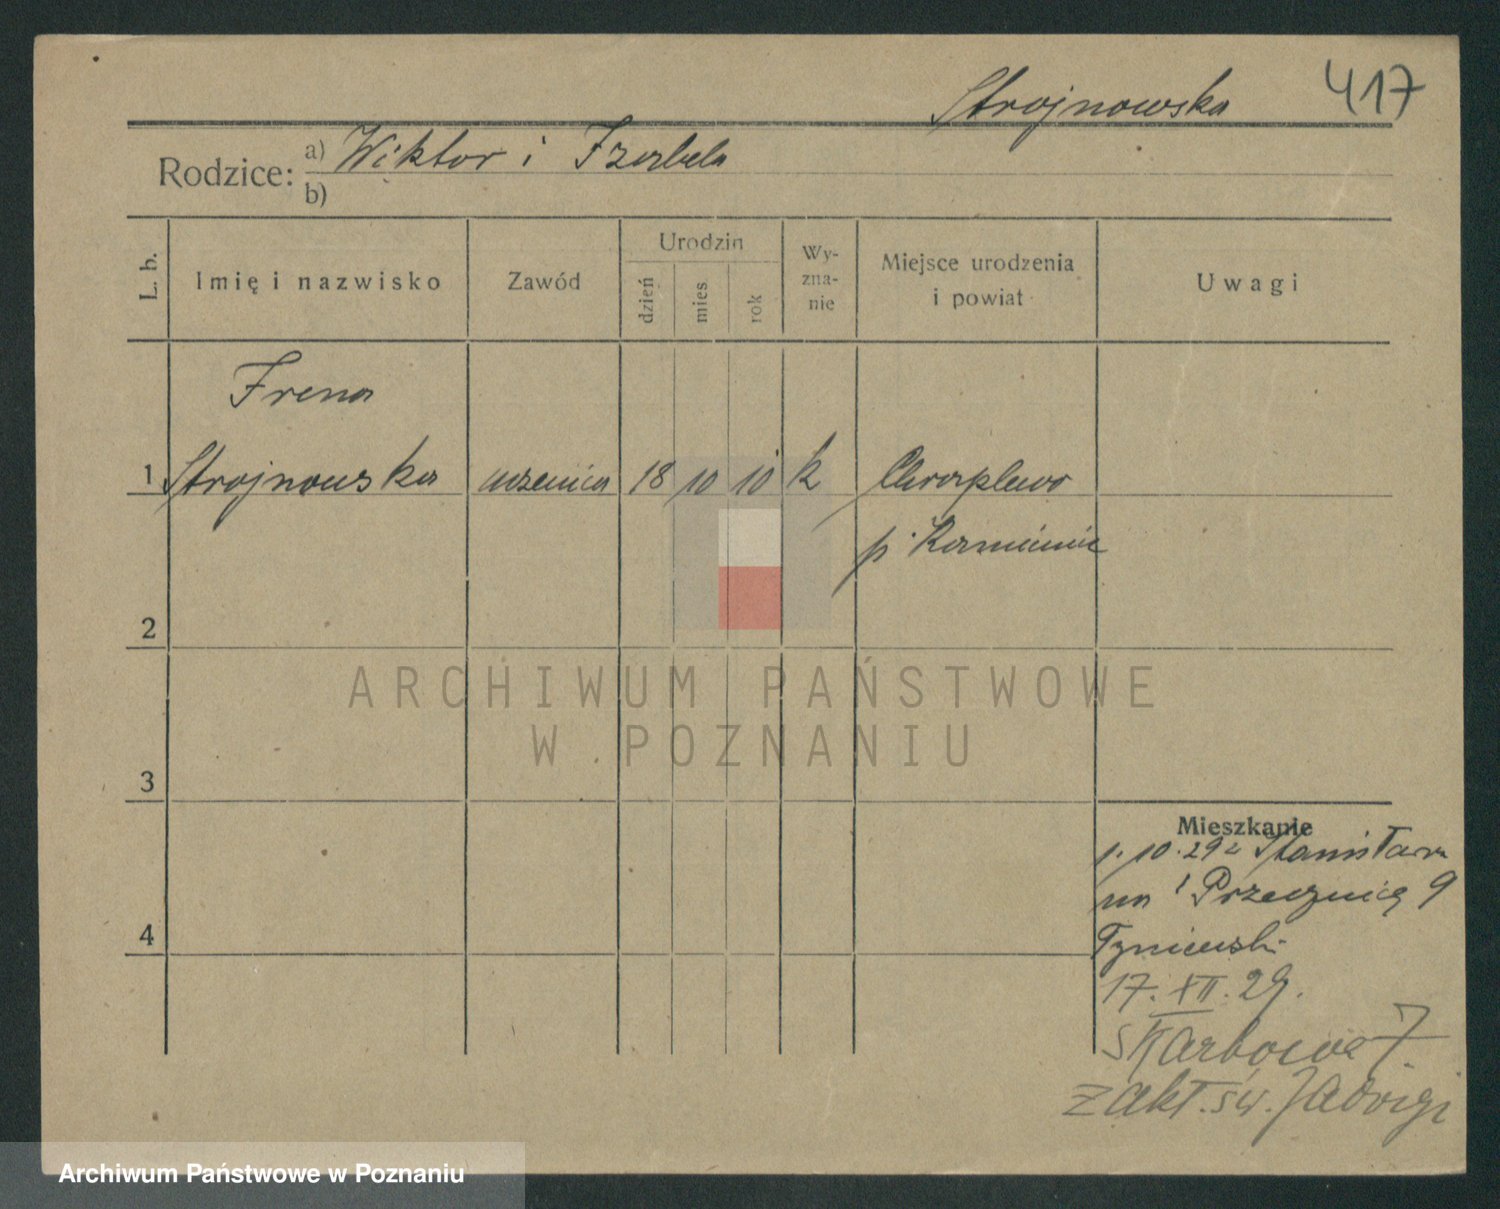 Strojnowska 417
Rodzice: a) Wiktor i Izabela
b)
L. b.
Imię i nazwisko
Zawód
Urodzin
dzień
mies.
rok
Wy-
zna-
nie
Miejsce urodzenia
i powiat
Uwagi
Irena
1 Strojnowska uczenica 18 10 10 k Chraplewo
p.
2
3
4
ARCHIWUM PAŃSTWOWE
W POZNANIU
Mieszkanie
1.10.29
Przecznica 9
17. XII. 29.
Skarbowa 7.
Zakł. św. Jadwigi
Archiwum Państwowe w Poznaniu